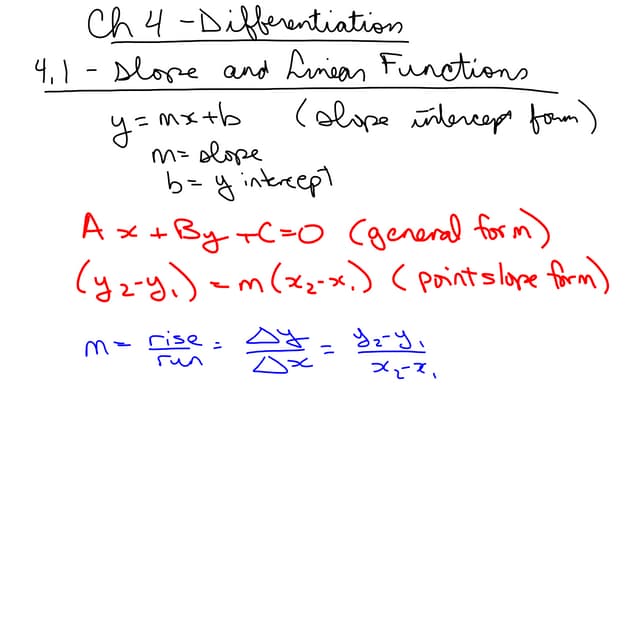 Ch 4 - Differentiation
4.1 - Slope and Linear Functions
y = mx + b (slope intercept form)
m = slope
b = y intercept
Ax + By + C = 0 (general form)
(y₂-y₁) = m(x₂-x₁) (point slope form)
m = rise/run = Δy/Δx = y₂-y₁/x₂-x₁